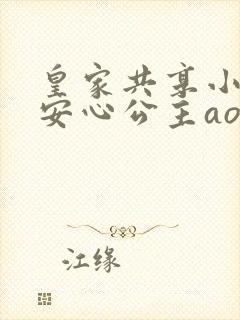 皇家共享小
安心公主ao
江缘